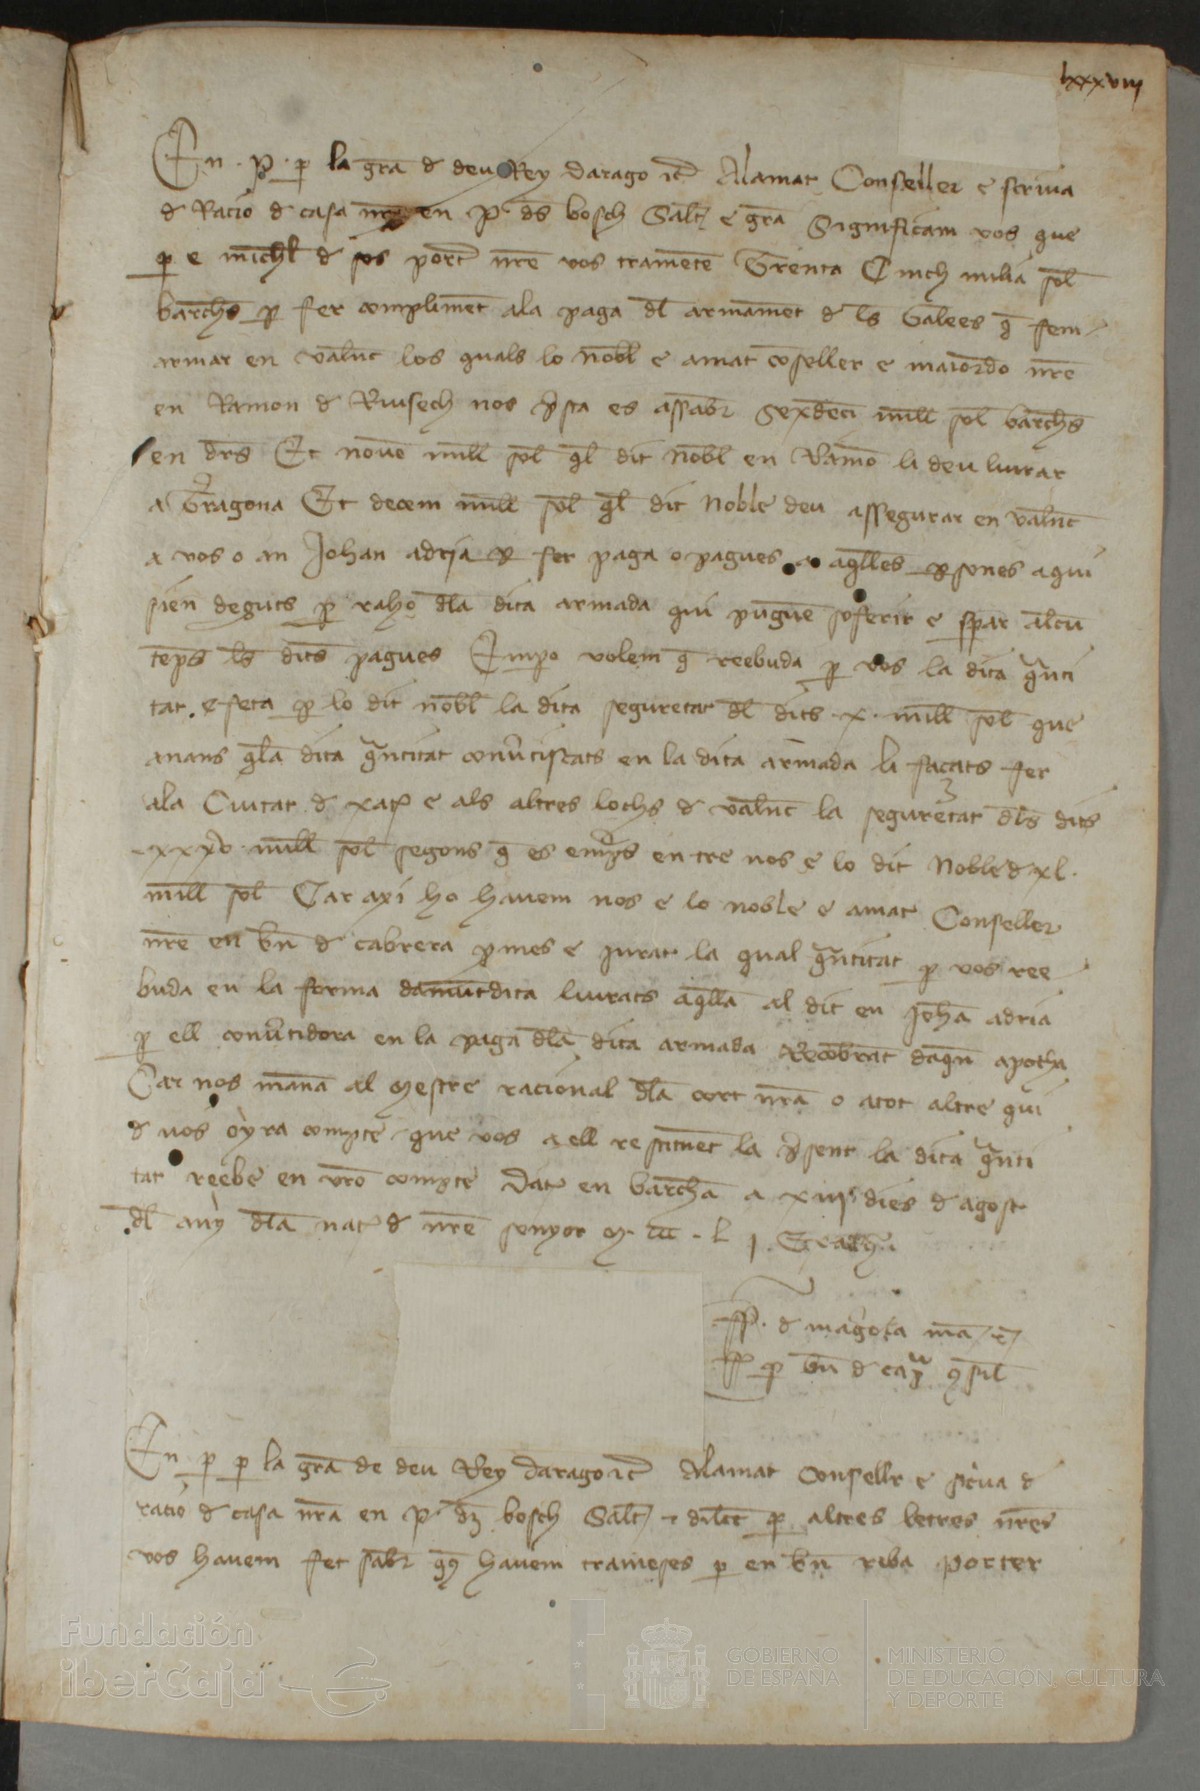 lxxxviij
En .P. p la gra d deu Rey darago etc Alamat Conseller e scriua
d Racio d casa nra en P. des bosch Salt e gra Significam vos que
p e michel d sos port nre vos trametē Trenta Cinch milia sol
barchs p fer compliment ala paga dl armament d ls Galees q fem
armar en valenc los quals lo nobl e amat coseller e maiordo nre
en Ramon d Riusech nos psta es assabr Sexdeci mill sol barchs
en drs Et noue mill sol ql dit nobl en Ramo li deu liurar
a Tragona Et decem mill sol ql dit noble deu assegurar en valenc
a vos o an Johan adria p fer paga o pagues a aqlles psones aqui
sien deguts p raho dla dita armada qui puguē soferir e spar alcu
temps ls dits pagues Empo volem q reebuda p vos la dita qnti
tat. e feta p lo dit nobl la dita seguretat dl dits .x. mill sol que
anans qla dita qntitat conutiscats en la dita armada li façats fer
ala Ciutat d xatia e als altres lochs d valenc la seguretat dls dits
.xxxv. mill sol segons q es empres entre nos e lo dit Noble d xl.
mill sol Car axi ho hauem nos e lo noble e amat Conseller
nre en bn d cabrera pmes e jurat la qual qntitat p vos ree
buda en la forma damuntdita liurats aqlla al dit en Joha adria
p ell conutidora en la paga dla dita armada Recobrant daqn apocha
Car nos mana al Mestre racional dla cort nra o atot altre qui
d vos oyra compte que vos a ell restituent la psent la dita qnti
tat reebe en vro compte Dat en barchna a xiiij dies d agost
dl any dla nat d nre senyor M. ccc. L j.
d magola ma
p bn d cap
En P p la gra de deu Rey darago etc Alamat consellr e scriua d
racio d casa nra en P. dz bosch Salt e dilect p altres letres nres
vos hauem fet sabr q hauem trameses p en bn riba porter
Fundación
iberCaja
GOBIERNO
DE ESPAÑA
MINISTERIO
DE EDUCACIÓN, CULTURA
Y DEPORTE